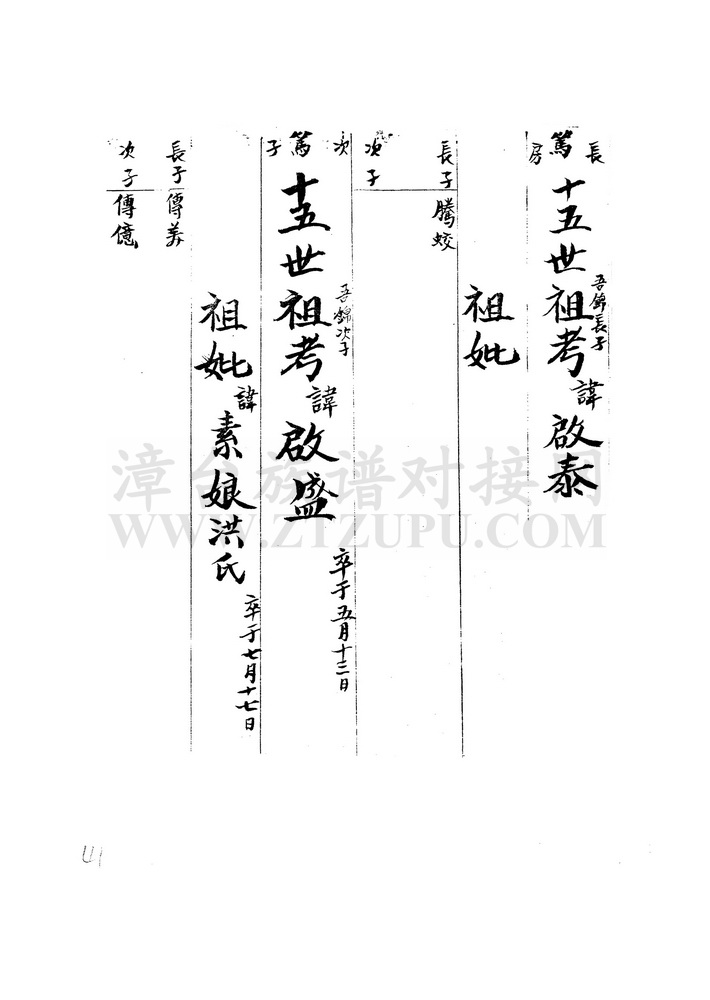 長房 篤
十五世祖考諱啟泰
吾錦長子
祖妣
長子 騰蛟
次子
次子 篤
十五世祖考諱啟盛
吾錦次子
卒于五月十三日
祖妣諱素娘洪氏
卒于七月十七日
長子 傳美
次子 傳億
漳台族谱对接网
WWW.ZTZUPU.COM
41